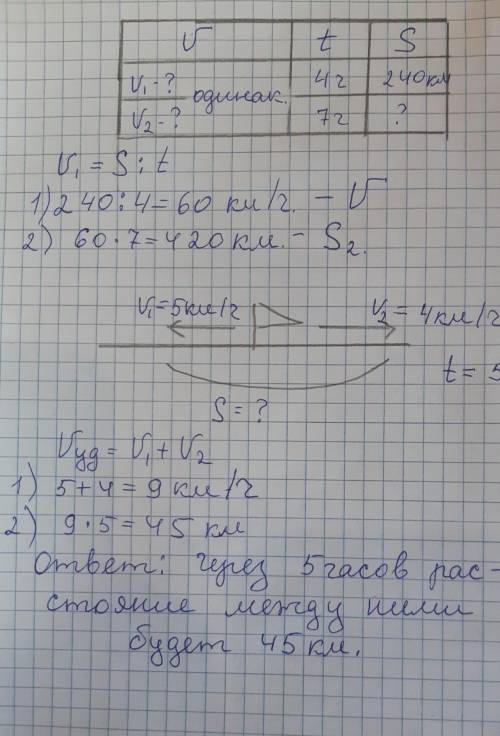 V t S
V₁-? одинак. 4ч 240км
V₂-? 7ч ?
V₁ = S : t
1) 240:4=60 км/ч. - V
2) 60·7=420 км. - S₂.
V₁=5км/ч V₂=4км/ч
t= 5
S=?
Vуд= V₁+V₂
1) 5+4=9 км/ч
2) 9·5=45 км
Ответ: через 5 часов рас-
стояние между ними
будет 45 км.